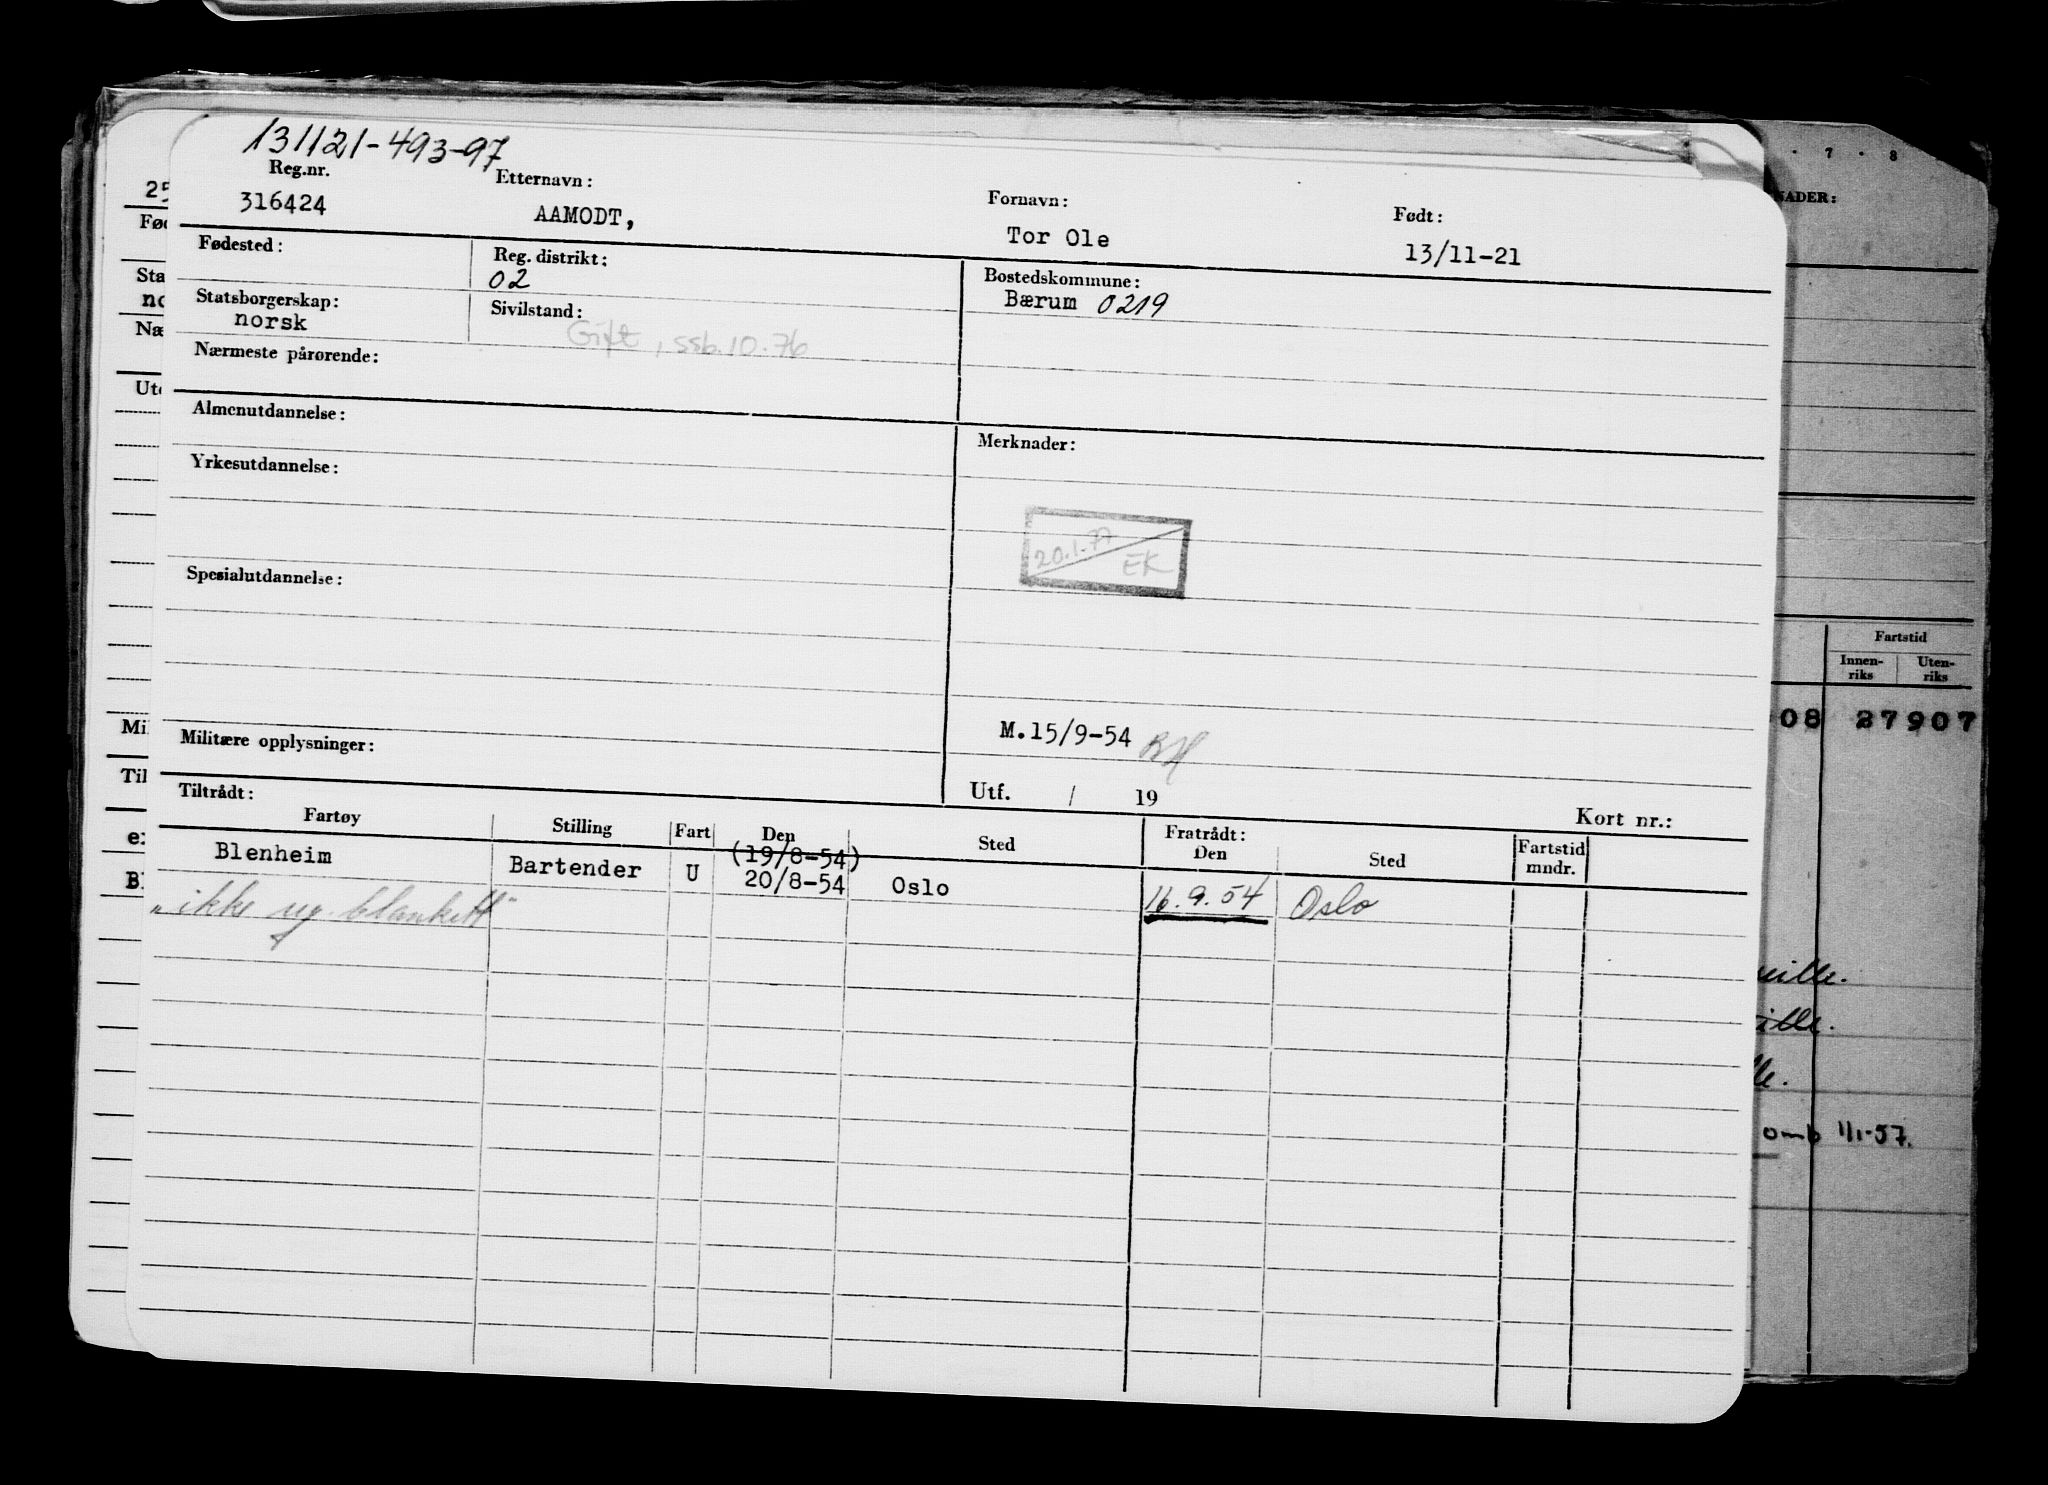 131121-493-97
Reg.nr. Etternavn: Fornavn: Født:
316424 AAMODT, Tor Ole 13/11-21
Fødested: Reg. distrikt: Bostedskommune:
02 Bærum 0219
Statsborgerskap: Sivilstand:
norsk Gift, ssb.10.76
Nærmeste pårørende:
Almenutdannelse: Merknader:
Yrkesutdannelse:
20.1.77 EK
Spesialutdannelse:
M.15/9-54
Militære opplysninger:
Utf. / 19 Kort nr.:
Tiltrådt: Fratrådt:
Fartøy Stilling Fart Den Sted Den Sted Fartstid mndr.
(19/8-54)
Blenheim Bartender U 20/8-54 Oslo 16.9.54 Oslo
"ikke ny blankett"
25
Fød
Sta
no
Næ
Ute
Mil
Til
Bl
7 . 8
NADER:
Fartstid
Innen-riks Uten-riks
08 27907
omb 1/1-57.